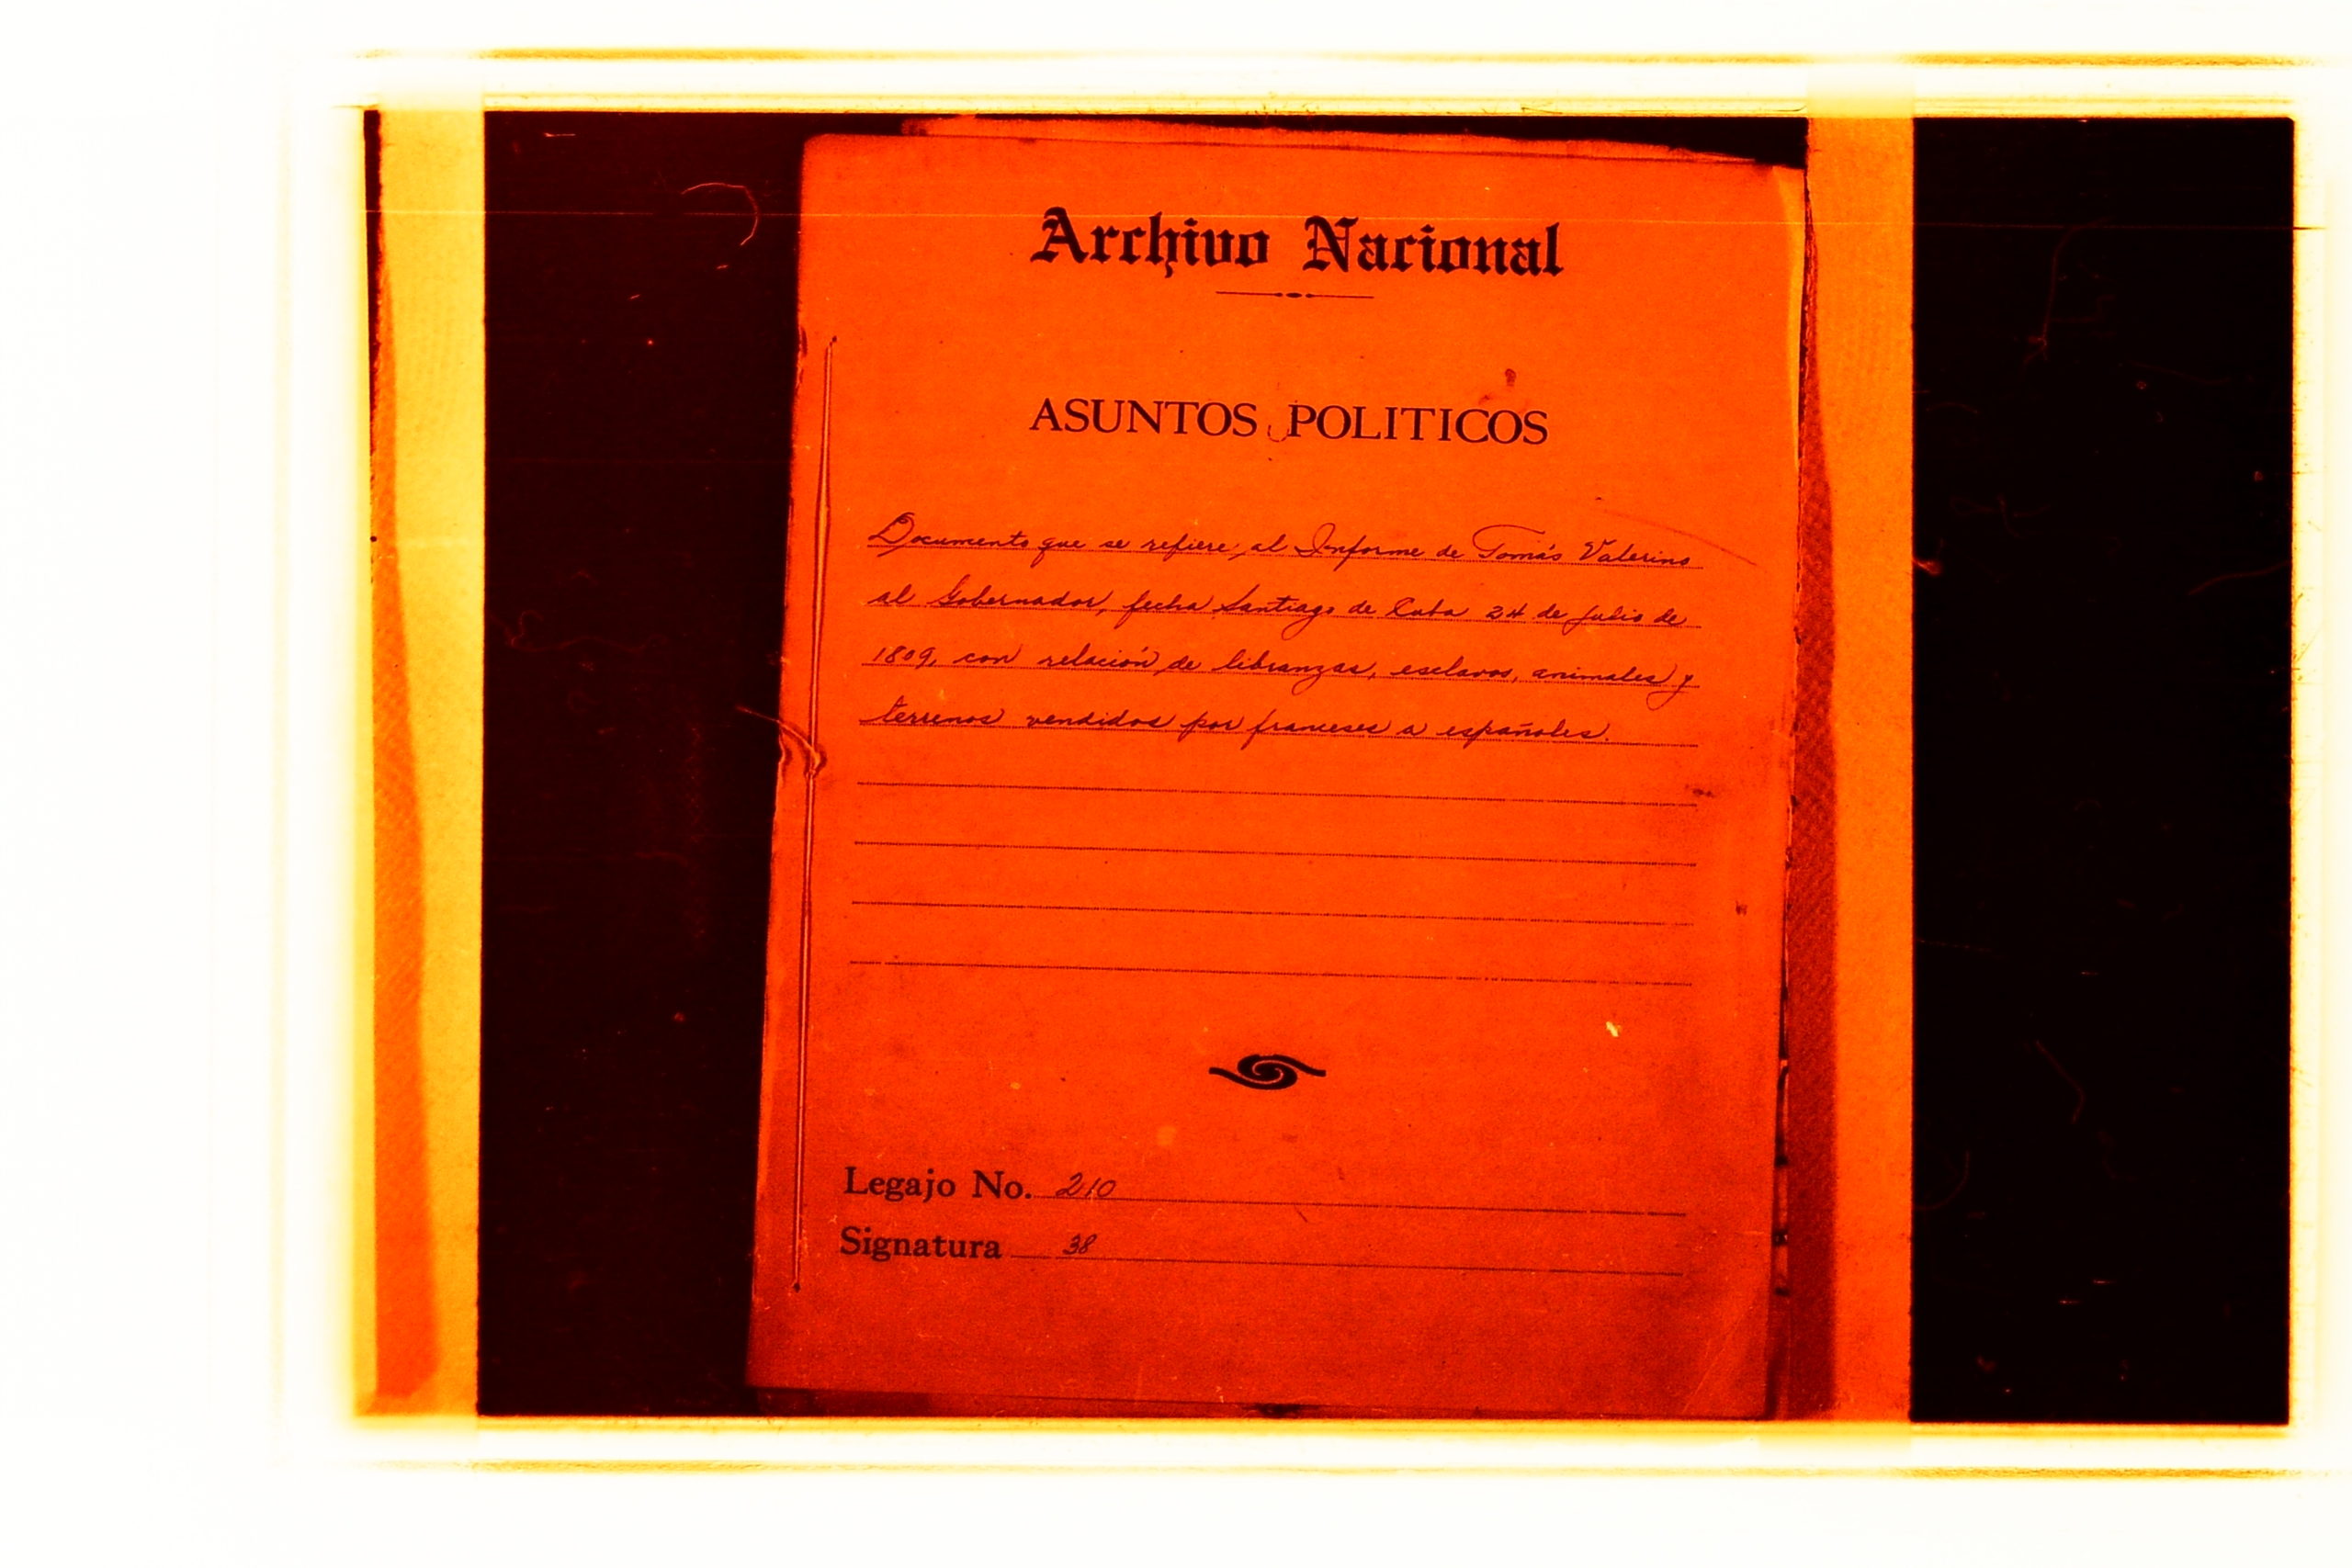 Archivo Nacional
ASUNTOS POLITICOS
Documento que se refiere al Informe de Tomás Valerino
al Gobernador, fecha Santiago de Cuba 24 de Julio de
1809, con relación de libranzas, esclavos, animales y
terrenos vendidos por franceses a españoles.
Legajo No. 210
Signatura 38